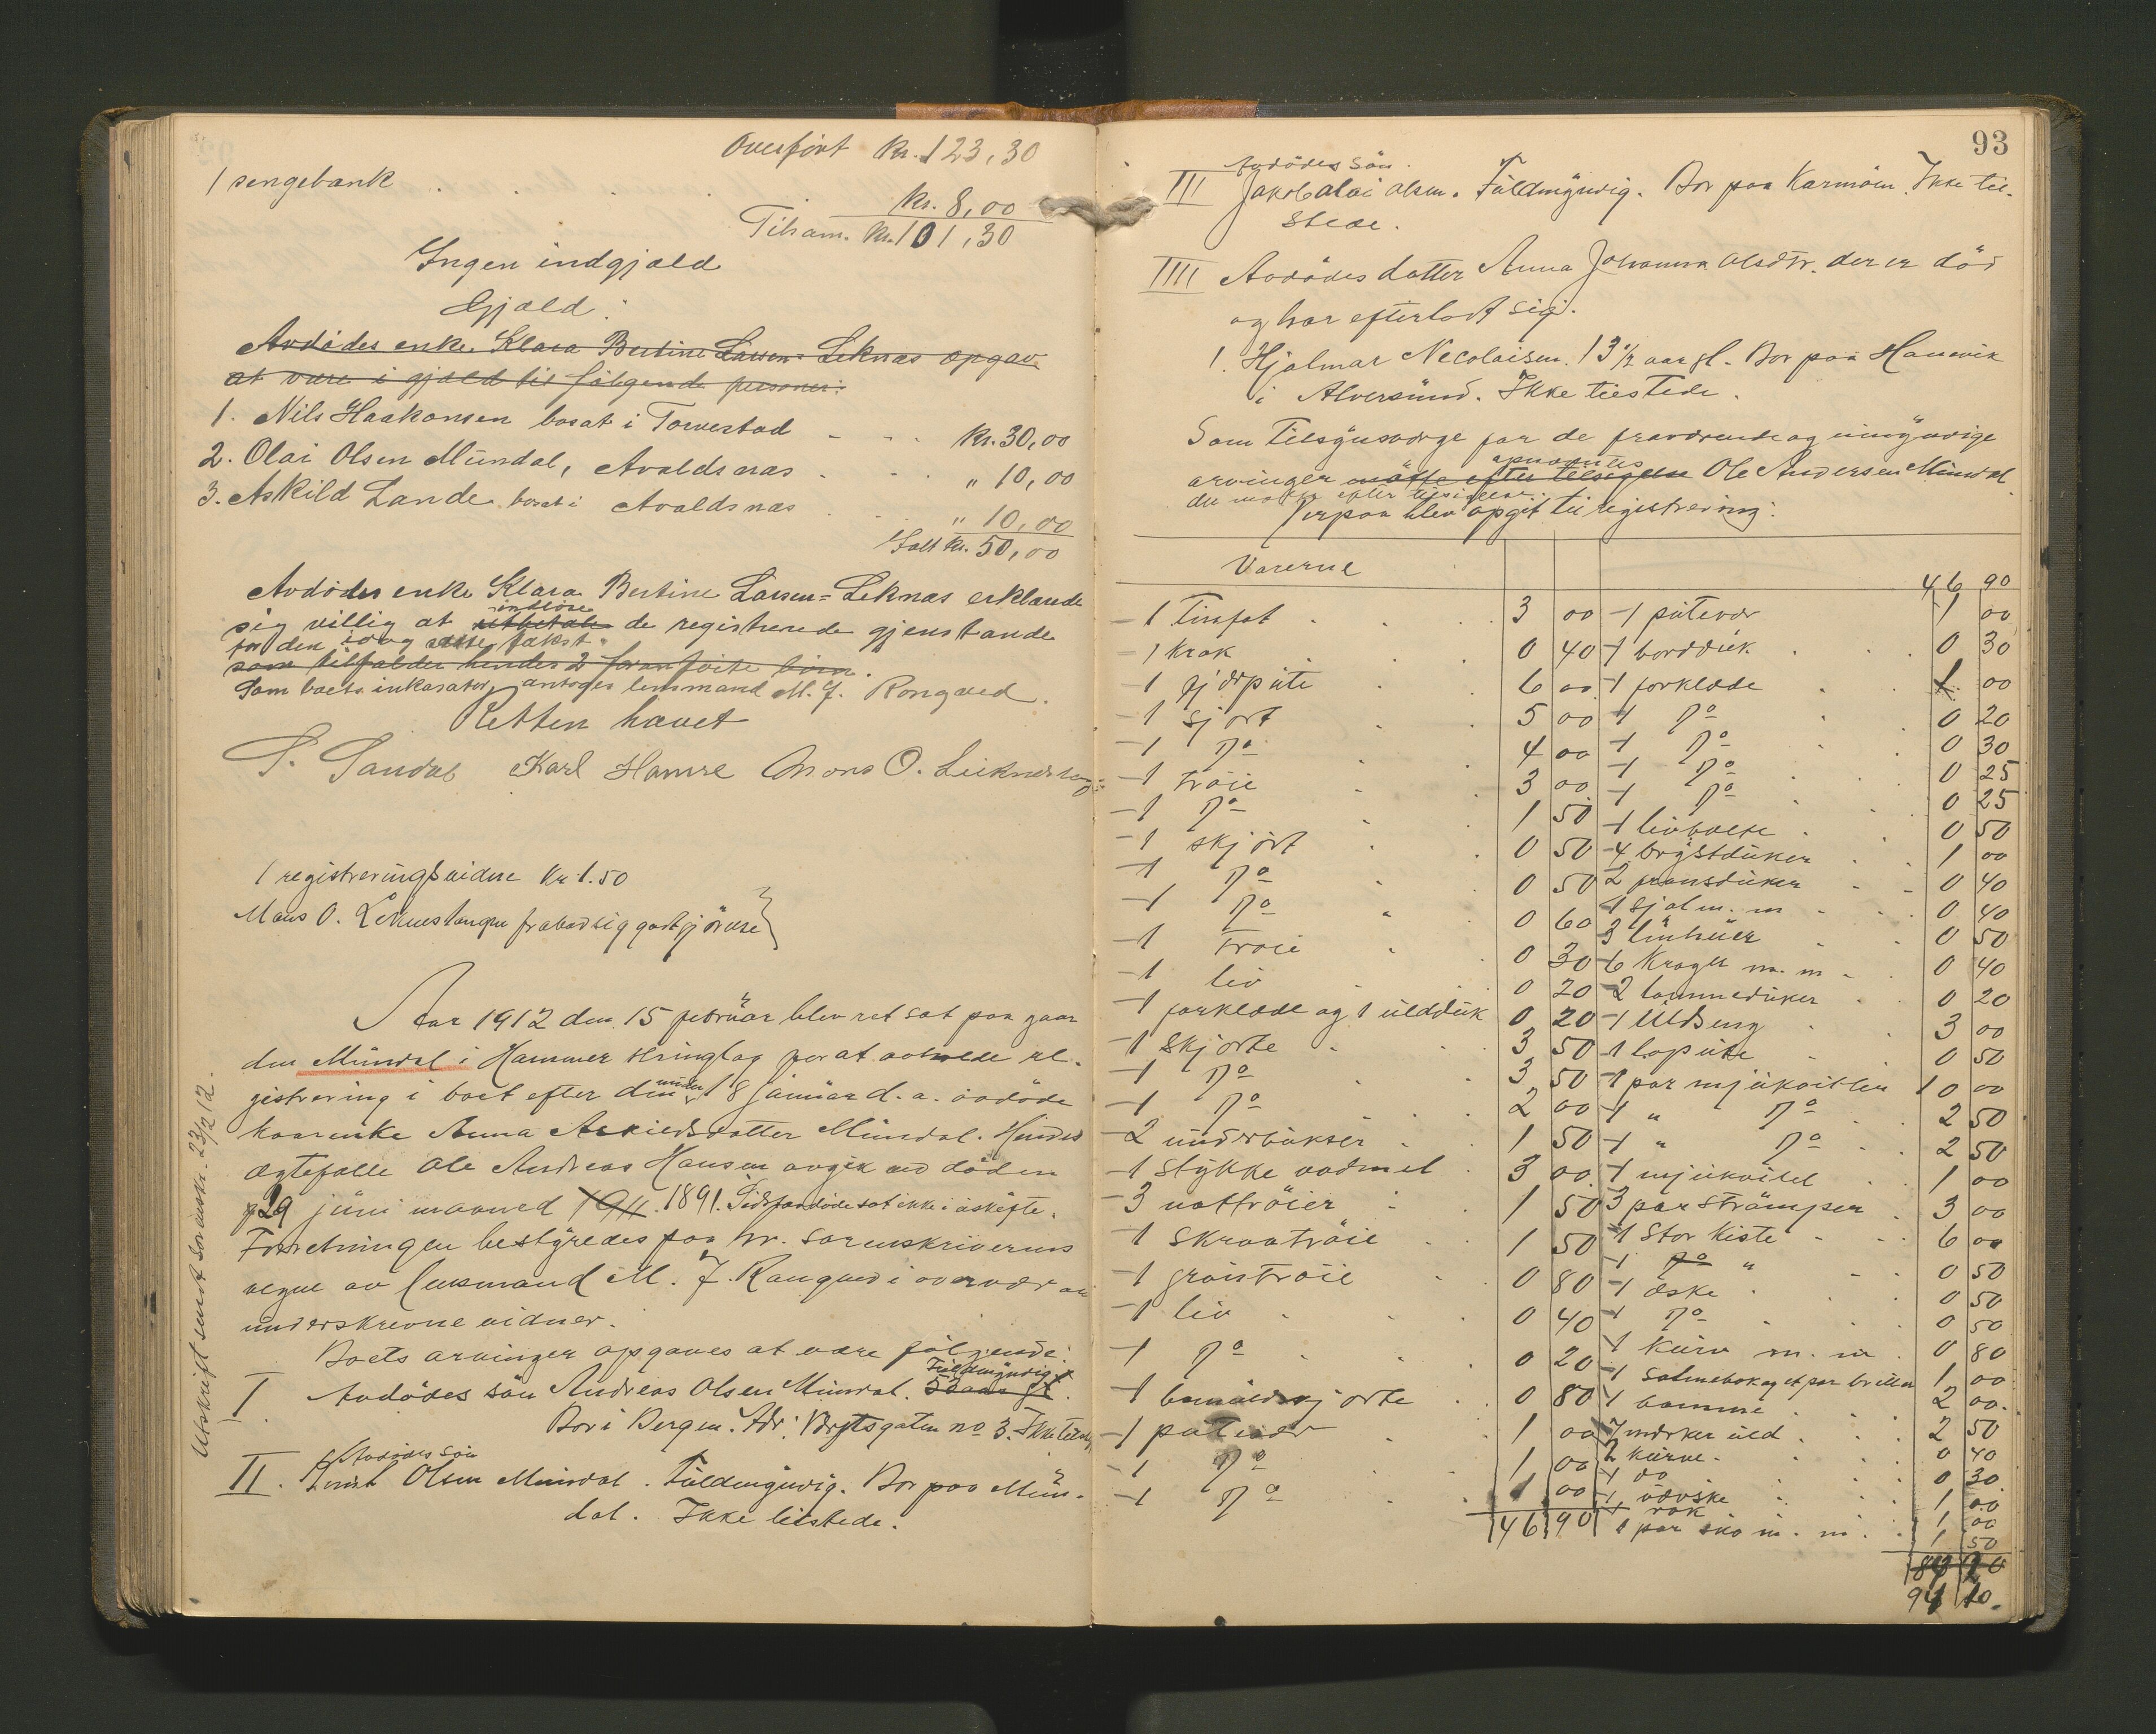 Overført Kr. 123,30
1 sengebank . . . . Kr. 8,00
Tilsam. Kr. 101,30
Ingen indgjæld
Gjæld:
Avdødes enke Klara Bertine Larsen-Leknæs opgav
at være i gjæld til følgende personer:
1. Nils Haakonsen bosat i Torvestad - - . Kr. 30,00
2. Olai Olsen Mündal, Avaldsnæs . . . " 10,00
3. Askild Lande bosat i Avaldsnæs . . " 10,00
Kr. 50,00
Avdødes enke Klara Bertine Larsen-Leknæs erklærede
sig villig at indløse utbetale de registrerede gjenstande
for den idag satte takst.
som tilfalder hendes 2 børn.
Som boets inkasator antoges lensmand M. J. Rongved.
Retten hævet
S. Sandal Karl Hamre Mons O. Leiknestang
1 registreringsvidne Kr 1.50
Mons O. Leknestangen frabad sig godtgjørelse }
Aar 1912 den 15 februar blev ret sat paa gaar
den Mündal i Hammer tinglag for at avholde re-
gistrering i boet efter den under 18 januar d. a. avdøde
kaarenke Anna Askildsdatter Mündal. Hendes
ægtefælle Ole Andreas Hansen avgik ved døden
29 juni maaned 1911. 1891. Sidstavdøde sat ikke i uskifte.
Forretningen bestyredes paa hr. sorenskriverens
vegne av lensmand M. J. Rongved i overvær av
underskrevne vidner.
Boets arvinger opgaves at være følgende:
I Avdødes søn Andreas Olsen Mündal. Füldmyndig. 53 aar gl.
Bor i Bergen. Adr: no 3. Ikke tilstede
II. Avdødes søn
Knut Olsen Mündal. Füldmyndig. Bor paa Mün-
dal. Ikke tilstede.
Utskrift sendt sorenskr. 23/2 12.
93
III Avdødes søn
Jakob Olai Olsen. Füldmyndig. Bor paa Karmøen. Ikke til-
stede.
IIII Avdødes datter Anna Johanna Olsdtr. der er død
og har efterladt sig:
1. Hjalmar Nicolaisen. 13 1/2 aar gl. Bor paa Hanevik
i Alversund. Ikke tilstede.
Som tilsynsværge for de fraværende og umyndige
arvinger møtte efter tilsigelse opnævntes Ole Andersen Mündal
der møtte efter tilsigelse.
Derpaa blev opgit til registrering:
Varerne
46 90
1 Tinfat . . . 3 00
1 Krak . . 0 40
1 fjørpüte . . 6 00
1 Sjort . . 5 00
1 Do . . 4 00
1 trøie . . 3 00
1 Do . . 1 50
1 skjört . . 0 50
1 Do . . 0 50
1 Do . . 0 60
1 Trøie . . 0 30
1 liv . . 0 20
1 forklæde og 1 ülddük 0 20
1 Skjorte . . 3 50
1 Do . . 3 50
1 Do . . 2 00
2 ünderbükser . . 1 50
1 stykke vadmel . 3 00
3 nattrøier . . 1 50
1 Skraatrøie . . 1 50
1 grøntrøie . . 0 80
1 liv . . . 0 40
1 Do . . 0 20
1 bomüldsjorte . . 0 80
1 pütevar . . 1 00
1 Do . . 1 00
1 Do . . 1 00
46 90
1 pütevar 1 00
1 borddük . . 0 30
1 forklæde . . 1 00
1 Do . 0 20
1 Do . 0 30
1 Do . 0 25
1 Do . 0 25
1 livbælte . 0 50
4 brystdüker . 1 00
2 fransdüker - - 0 40
1 sjal m. m - . 0 40
3 linhüer . . 0 50
6 Krager m. m - . 0 40
2 lommedüker . . 0 20
1 Uldseng . . 3 00
1 lopüte . . 0 50
1 par mjükvitler 10 00
1 " Do . 2 50
1 " Do . . 2 50
1 mjükvitel . 1 00
3 par strømper . 3 00
1 Stor Kiste - - 6 00
1 Do " - - 0 50
1 æske . . 0 50
1 Do . . 0 50
1 Kürv m. m . 0 80
1 salmebok og et par briller 1 00
1 tomme . . 2 00
7 mærker üld . . 2 50
2 Kürve . . 0 40
1 do . . 0 30
1 vævske . . 1 00
1 rok 1 00
1 par sko m. m. . 1 50
94 10